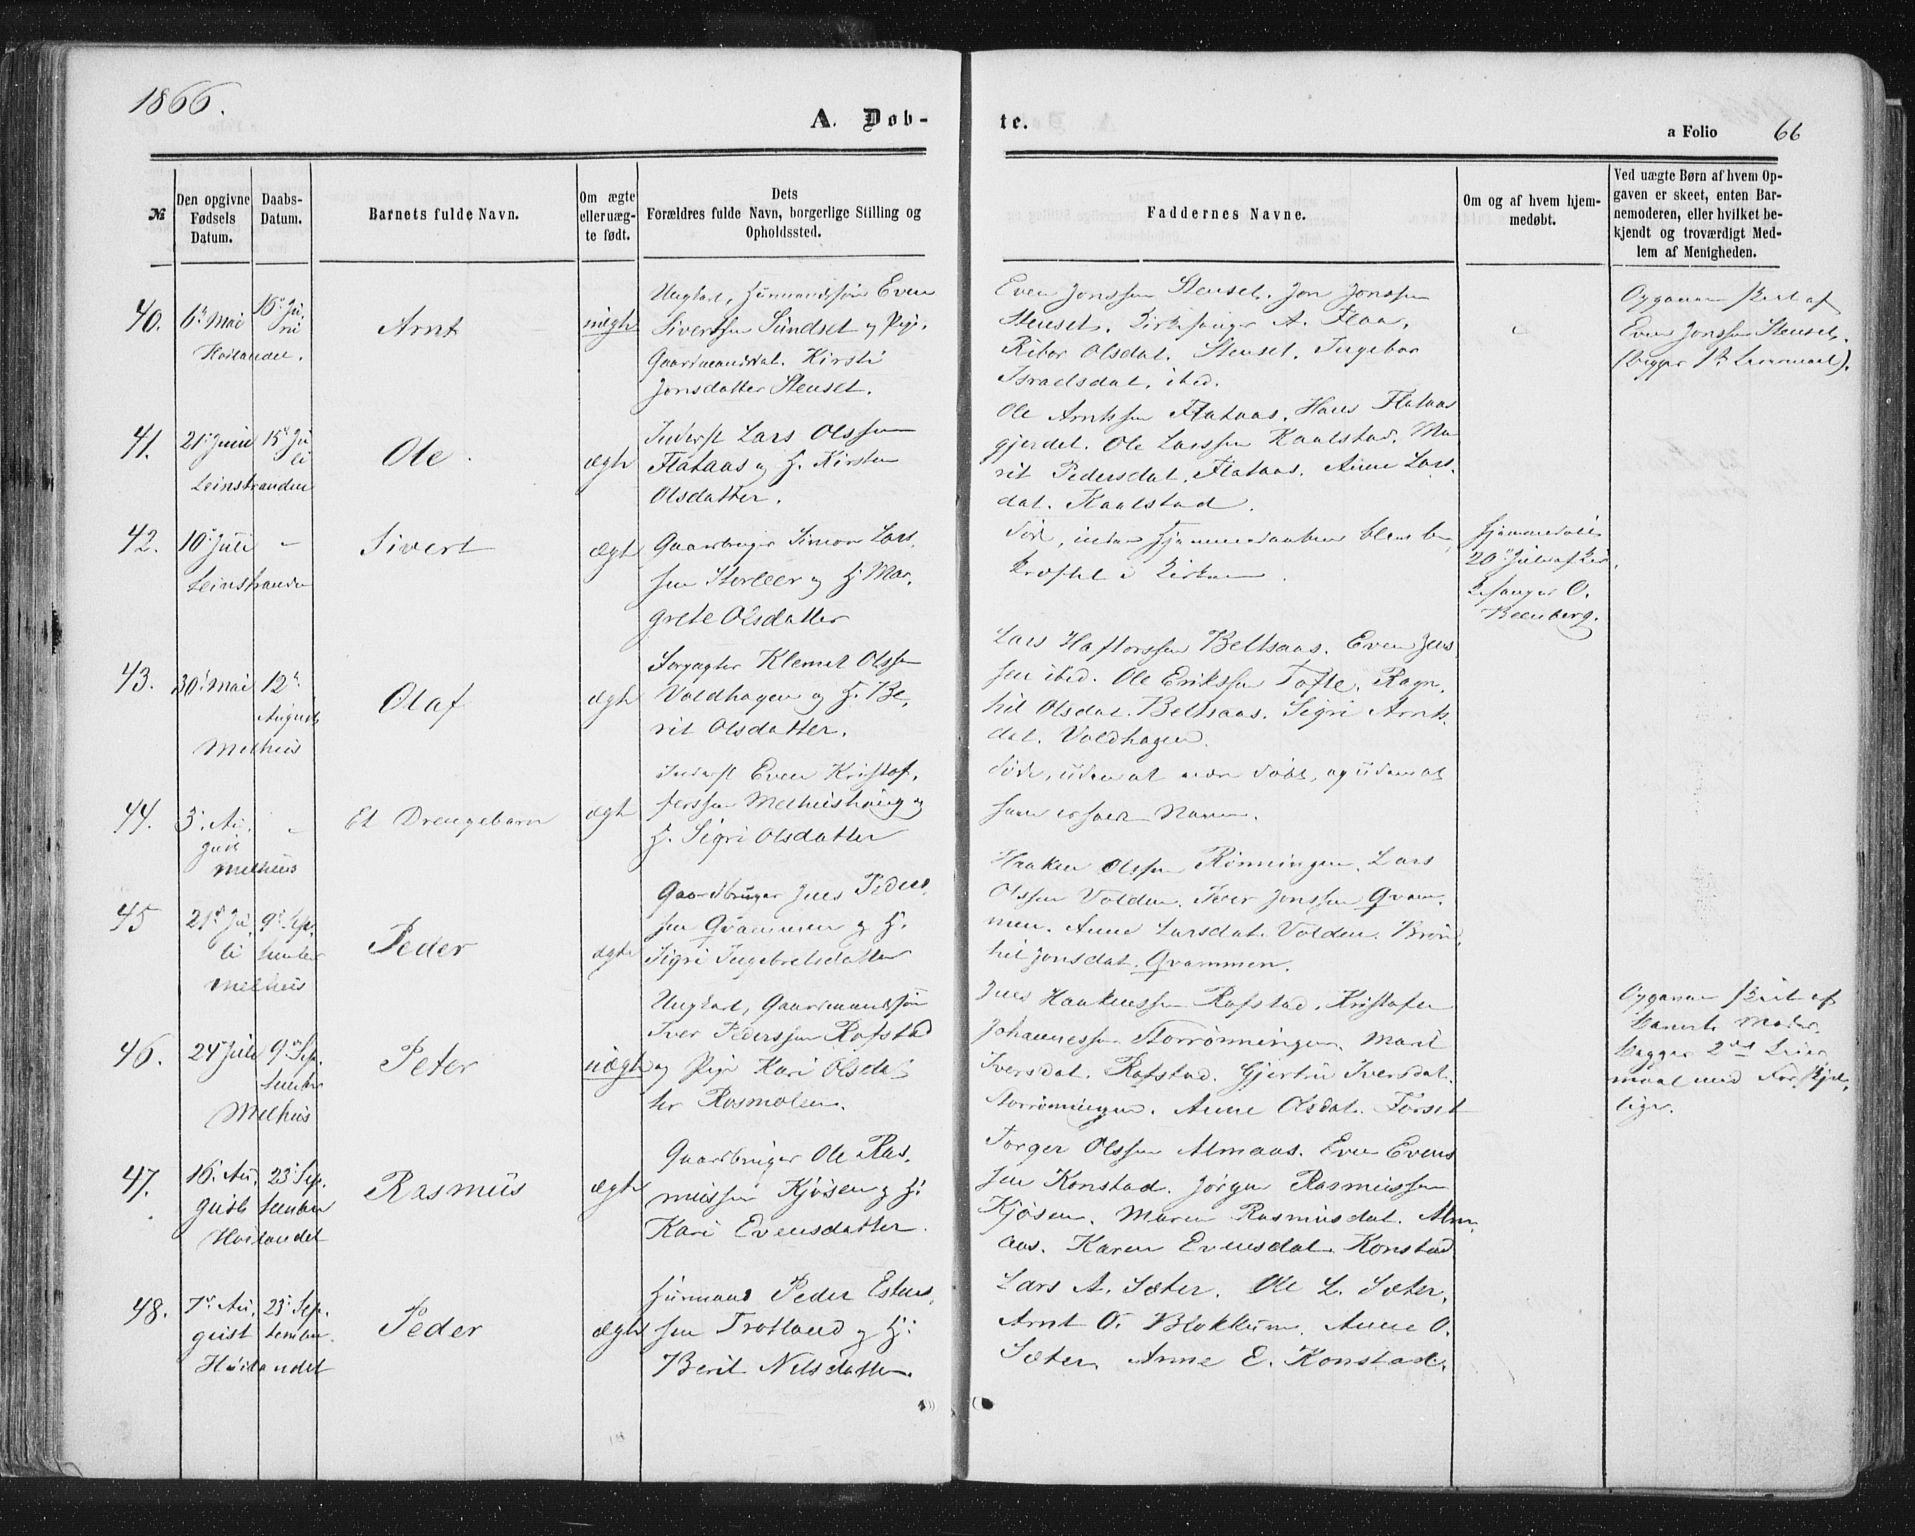 1866.
A. Døb-
te.
a Folio 66
№
Den opgivne Fødsels Datum.
Daabs-Datum.
Barnets fulde Navn.
Om ægte eller uæg-te født.
Dets Forældres fulde Navn, borgerlige Stilling og Opholdssted.
Faddernes Navne.
Om og af hvem hjem-medøbt.
Ved uægte Børn af hvem Op-gaven er skeet, enten Bar-nemoderen, eller hvilket be-kjendt og troværdigt Med-lem af Menigheden.
40.
6' Mai
Høilandet.
Arnt
uægte
Ungkarl, Huusmandssøn Even
Siversen Sundset og Pige,
Gaardmandsdat. Kirsti
Jonsdatter Stenset.
Even Jonssen Stenset. Jon Jonssen
Stenset. Kirkesanger A. Flaa.
Olsdat. Stenset. Ingebor
Israelsdat. ibid.
Opgaven skeet af
Even Jonssen Stenset.
(begges 1ste Leiermaal).
41.
21' Juni
15' Ju
li
Leinstranden
Ole.
ægte
Inderst Lars Olssen
Flataas og H. Kirsten
Olsdatter.
Ole Arntssen Flataas. Hans Flataas
gjerdet. Ole Larssen Kaalstad. Ma
rit Pedersdat. Flataas. Anne Lars
dat. Kaalstad.
42.
10' Juli
"
Leinstranden
Sivert
ægte
Gaardbruger Simon Lars
sen Storleer og H. Mar,
grete Olsdatter
Død, inden Hjemmedaaben blev be,
kræftet i Kirken.
Hjemmedøbt
20' Juli af Kir,
kesanger O.
43.
30' Mai
12'
August
Melhuus
Olaf
ægte
Forpagter Klemet Olssen
Voldhagen og H. Be,
rit Olsdatter.
Lars Haftorssen Beltsaas. Even Jens
sen ibid. Ole Erikssen Tofte. Ragn,
hil Olsdat. Beltsaas. Sigri Arnts
dat. Voldhagen.
44.
3' Au,
gust
"
Melhuus
Et Drengebarn
ægte
Inderst Even Kristof,
ferssen Melhuushaug og
H. Sigri Olsdatter
Døde, uden at være døbt, og uden at
have erholdt Navn.
45
21' Ju,
li
9' Sep,
tember
Melhuus
Peder
ægte
Gaardbruger Jens Peders,
sen Qvammen og H.
Sigri Ingebretsdatter
Haaken Olssen Rønningen. Lars
Olssen Volden. Iver Jonssen Qvam,
men. Anne Larsdat. Volden. Brøn,
hil Jonsdat. Qvammen.
46.
24' Juli
9' Sep,
tember
Melhuus
Peter
uægte
Ungkarl, Gaardmandssøn
Iver Pederssen Rofstad
og Pige Kari Olsdat
ter Rosmolen.
Jens Haakenssen Rofstad. Kristofer
Johannessen Storrønningen. Marit
Iversdat. Rofstad. Gjertru Iversdat.
Storrønningen. Anne Olsdat. Forset
Opgaven skeet af
Barnets Moder.
Begges 2det Leier
maal med Forskjel,
lige.
47.
16' Au,
gust
23' Sep,
tember
Høilandet
Rasmus
ægte
Gaardbruger Ole Ras,
mussen Kjøsen og H.
Kari Evensdatter.
Torger Olssen Almaas. Even Evens
sen Konstad. Jørgen Rasmussen
Kjøsen. Maren Rasmusdat. Alm,
aas. Karen Evensdat. Konstad
48.
7' Au,
gust
23' Sep,
tember
Høilandet
Peder
ægte
Huusmand Peder Estens,
sen Trotland og H.
Berit Nilsdatter.
Lars A. Sæter. Ole L. Sæter.
Arnt O. Blokkum. Anne O.
Sæter. Anne E. Konstad.